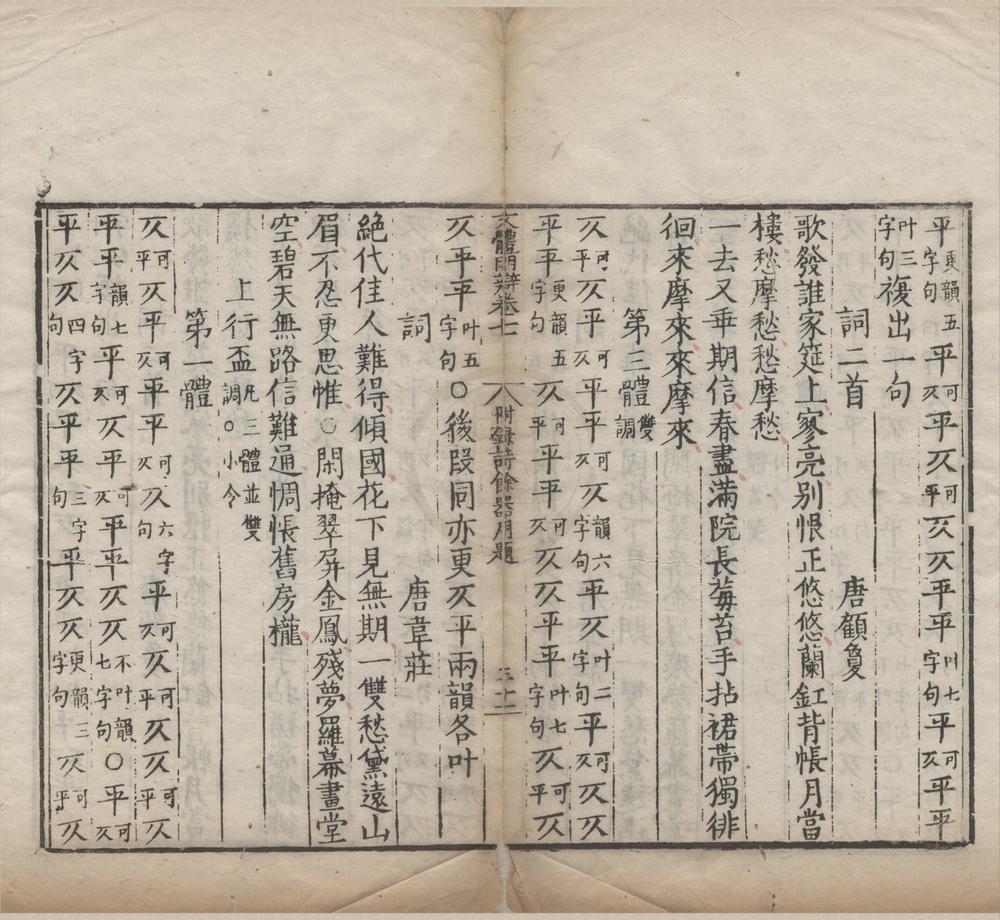 平更韻五字句平可仄平仄可平仄仄平平叶七字句平可仄平平
叶三字句複出一句
詞二首　唐顧敻
歌發誰家筵上寥亮別恨正悠悠蘭釭背帳月當
樓愁摩愁愁摩愁
一去又乖期信春盡滿院長莓苔手拈裙帶獨徘
徊來摩來來摩來
第三體雙調
仄可平仄平可仄平平可仄仄韻六字句平叶二字句平可仄仄仄
平平更韻五字句仄可平平平可仄仄仄平平叶七字句仄仄可平仄
文體明辯卷七　附錄詩餘器用題　三十二
仄平平叶五字句○後段同亦更仄平兩韻各叶
詞　唐韋莊
絕代佳人難得傾國花下見無期一雙愁黛遠山
眉不忍更思惟○閑掩翠屏金鳳殘夢羅幕畫堂
空碧天無路信難通惆悵舊房櫳
上行盃凡三體並雙調○小令
第一體
仄可平仄平可仄平平可仄仄六字句平可仄仄可平仄仄可平仄
平平韻七字句平可仄仄平可仄平平仄仄不叶韻七字句○平可仄
平仄仄四字句仄平平三字句平仄仄更韻三字句仄可平仄